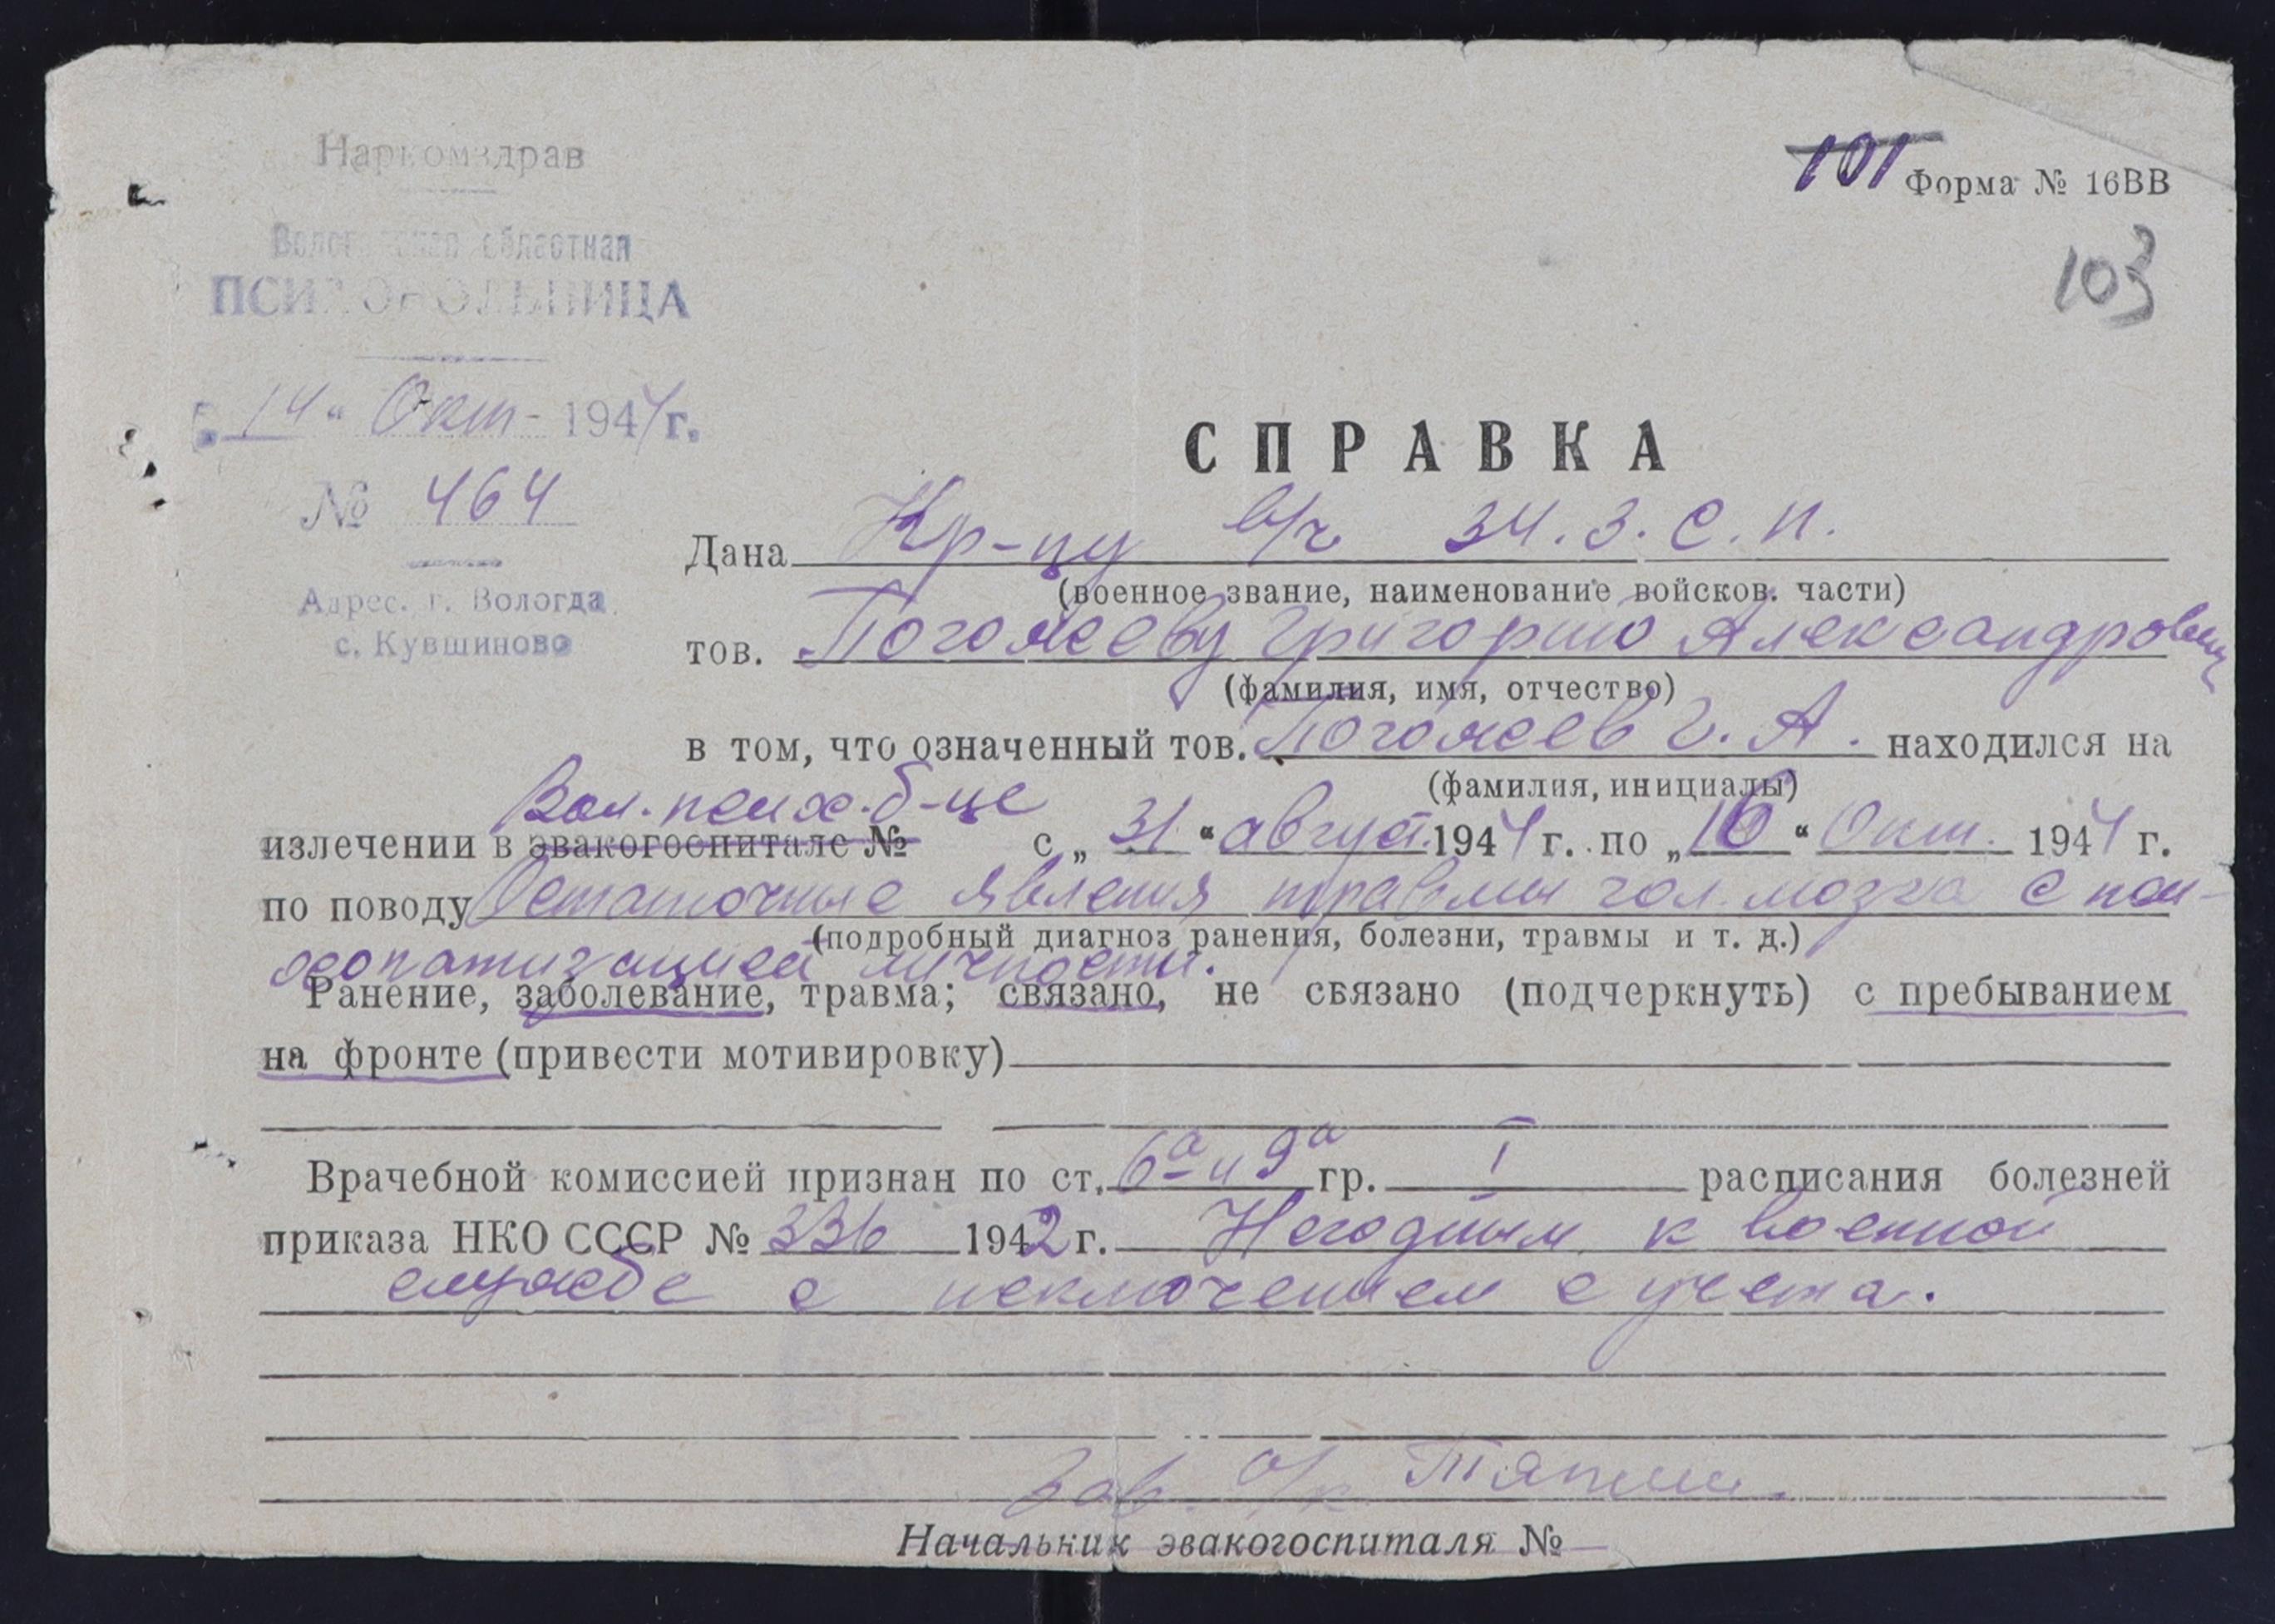 Наркомздрав
Вологодская областная
ПСИХОБОЛЬНИЦА
"14" Окт- 1944г.
№ 464
Адрес. г. Вологда,
с. Кувшиново
101 Форма № 16ВВ
103
СПРАВКА
Дана Кр-цу в/ч 34.З.С.П.
(военное звание, наименование войсков. части)
тов. Погожееву Григорию Александрович
(фамилия, имя, отчество)
в том, что означенный тов. Погожеев Г. А. находился на
(фамилия, инициалы)
Вол. псих. б-це
излечении в эвакогоспитале № с „31“ август 1944 г. по „16“ Окт. 1944 г.
по поводу Остаточные явления травмы гол. мозга с пси-
(подробный диагноз ранения, болезни, травмы и т. д.)
хопатизацией личности.
Ранение, заболевание, травма; связано, не связано (подчеркнуть) с пребыванием
на фронте (привести мотивировку)
Врачебной комиссией признан по ст. 6а и 9а гр. I расписания болезней
приказа НКО СССР № 336 1942 г. Негодным к военной
службе с исключением с учета.
Зав.
Начальник эвакогоспиталя №